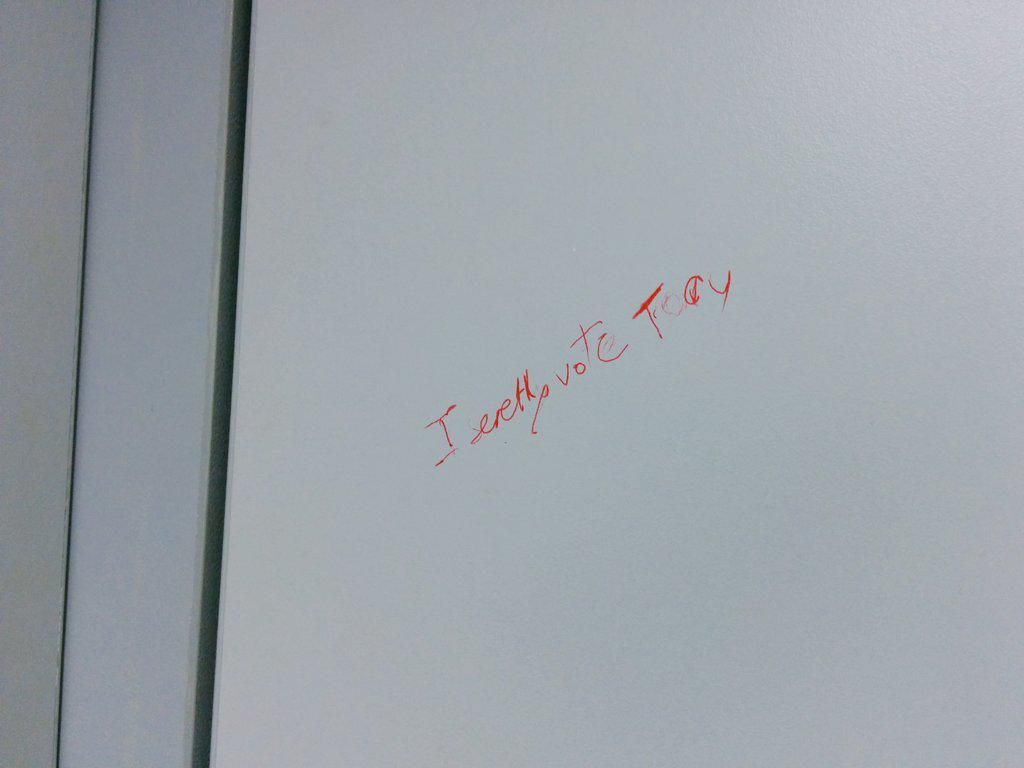 I serethp vote Tory